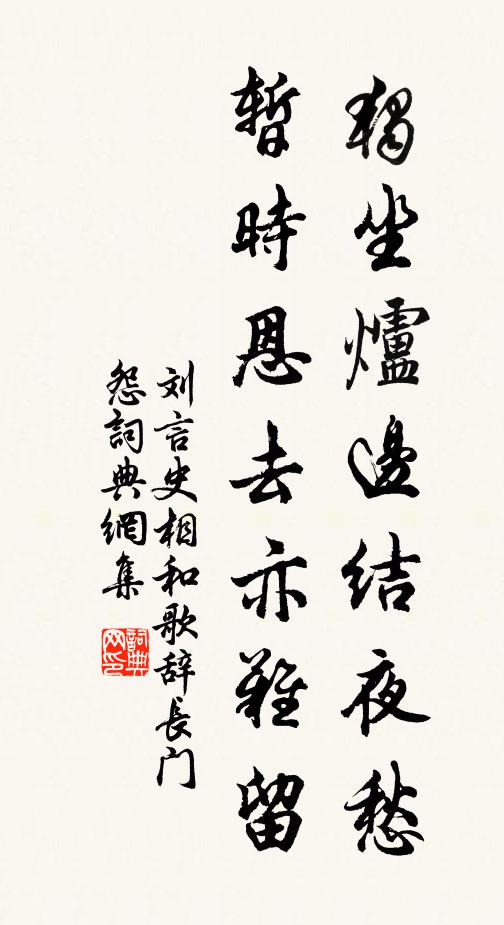 獨坐爐邊結夜愁
暫時恩去亦難留
刘言史相和歌辞長门
怨詞典網集
詞典网印